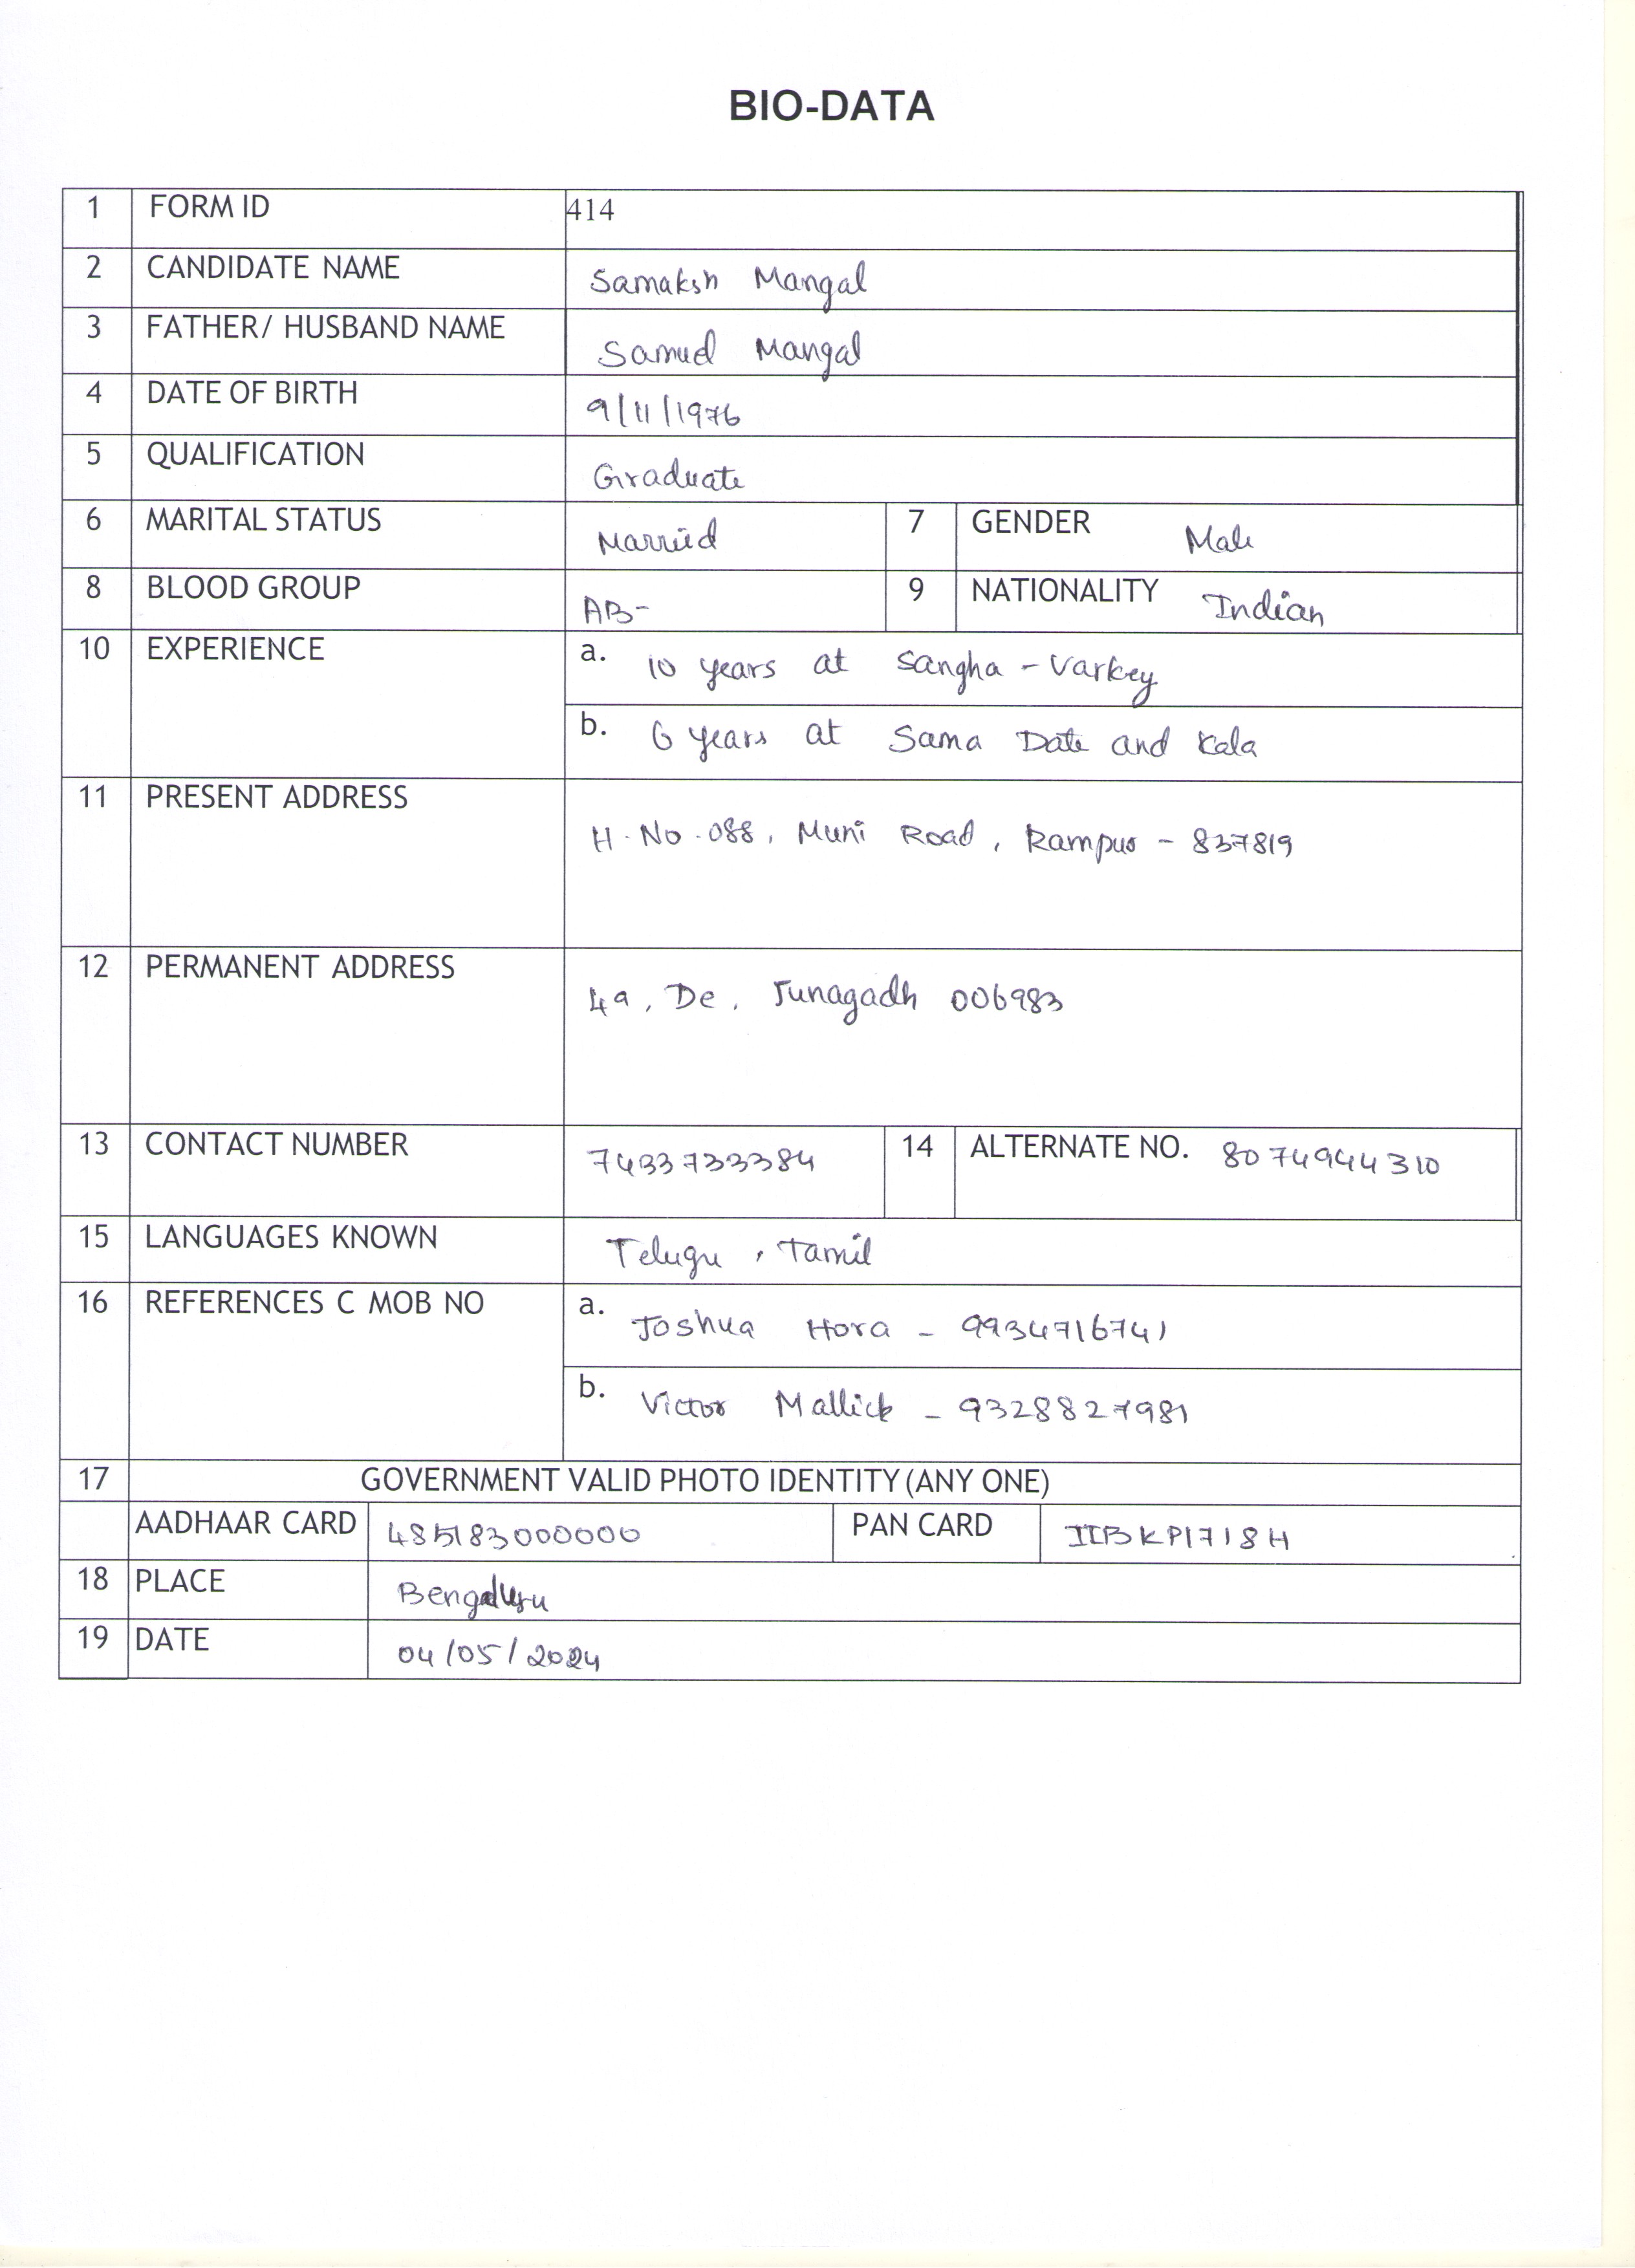 BIO-DATA
1 FORM ID 414
2 CANDIDATE NAME Samaksh Mangal
3 FATHER/ HUSBAND NAME Samuel Mangal
4 DATE OF BIRTH 9/11/1976
5 QUALIFICATION Graduate
6 MARITAL STATUS Married 7 GENDER Male
8 BLOOD GROUP AB- 9 NATIONALITY Indian
10 EXPERIENCE a. 10 years at Sangha - Varkey
b. 6 years at Sama Date and Kala
11 PRESENT ADDRESS H.No.088, Muni Road, Rampur - 837819
12 PERMANENT ADDRESS 49, De, Junagadh 006983
13 CONTACT NUMBER 7433733384 14 ALTERNATE NO. 8074944310
15 LANGUAGES KNOWN Telugu, Tamil
16 REFERENCES C MOB NO a. Joshua Hora - 9934716741
b. Victor Mallick - 9328827981
17 GOVERNMENT VALID PHOTO IDENTITY (ANY ONE)
AADHAAR CARD 485183000000 PAN CARD IIBKP1718H
18 PLACE Bengaluru
19 DATE 04/05/2024